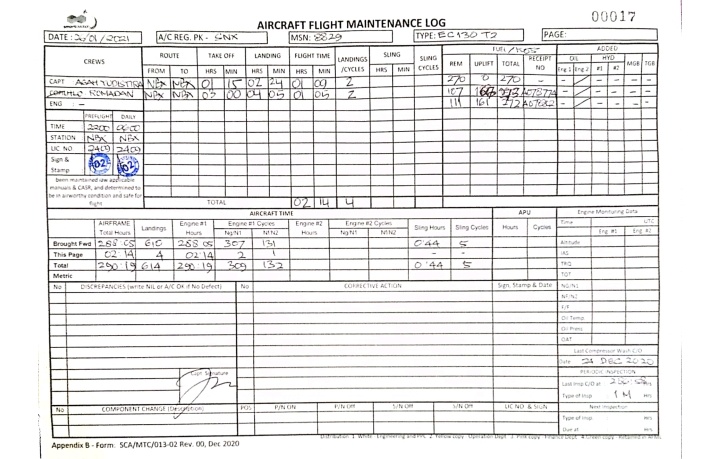 AIRCRAFT FLIGHT MAINTENANCE LOG
00017
DATE: 26/01/2021 A/C REG. PK - SNX MSN: 8829 TYPE: EC130 T2 PAGE:
CREWS ROUTE TAKE OFF LANDING FLIGHT TIME LANDINGS /CYCLES SLING SLING CYCLES FUEL / ADDED
FROM TO HRS MIN HRS MIN HRS MIN HRS MIN REM UPLIFT TOTAL RECEIPT NO OIL HYD MGB TGB
Eng 1 Eng 2 #1 #2
CAPT NBX NBX 01 15 02 24 01 09 2 270 0 270 - - - - - -
ROMADAN NBX NBX 03 00 04 05 01 05 2 107 166 273 - - - - -
ENG - 111 161 272 - - - - -
PREFLIGHT DAILY
TIME 2200
STATION NBX NBX
LIC NO 2409 2409
Sign & Stamp 02 02
Been maintained iaw applicable manuals & CASR, and determined to be in airworthy condition and safe for flight
TOTAL 02 14 4
AIRCRAFT TIME APU Engine Monitoring Data
AIRFRAME Total Hours Landings Engine #1 Hours Engine #1 Cycles Engine #2 Hours Engine #2 Cycles Sling Hours Sling Cycles Hours Cycles Time UTC
Ng/N1 Nf/N2 Ng/N1 Nf/N2 Eng #1 Eng #2
Brought Fwd 288:05 610 288:05 307 131 0:44 5 Altitude
This Page 02:14 4 02:14 2 1 - - IAS
Total 290:19 614 290:19 309 132 0:44 5 TRQ
Metric TOT
No DISCREPANCIES (write NIL or A/C OK if No Defect) No CORRECTIVE ACTION Sign, Stamp & Date NG/N1
NF/N2
F/F
Oil Temp
Oil Press
OAT
Last Compressor Wash C/O
Date 24 DEC 2020
PERIODIC INSPECTION
Capt. Signature
Last Insp C/O at Hrs
Type of Insp 1 M Hrs
No COMPONENT CHANGE (Description) POS P/N ON P/N Off S/N Off S/N On LIC NO & SIGN Next Inspection
Type of Insp. Hrs
Due at Hrs
Appendix B - Form: SCA/MTC/013-02 Rev. 00, Dec 2020